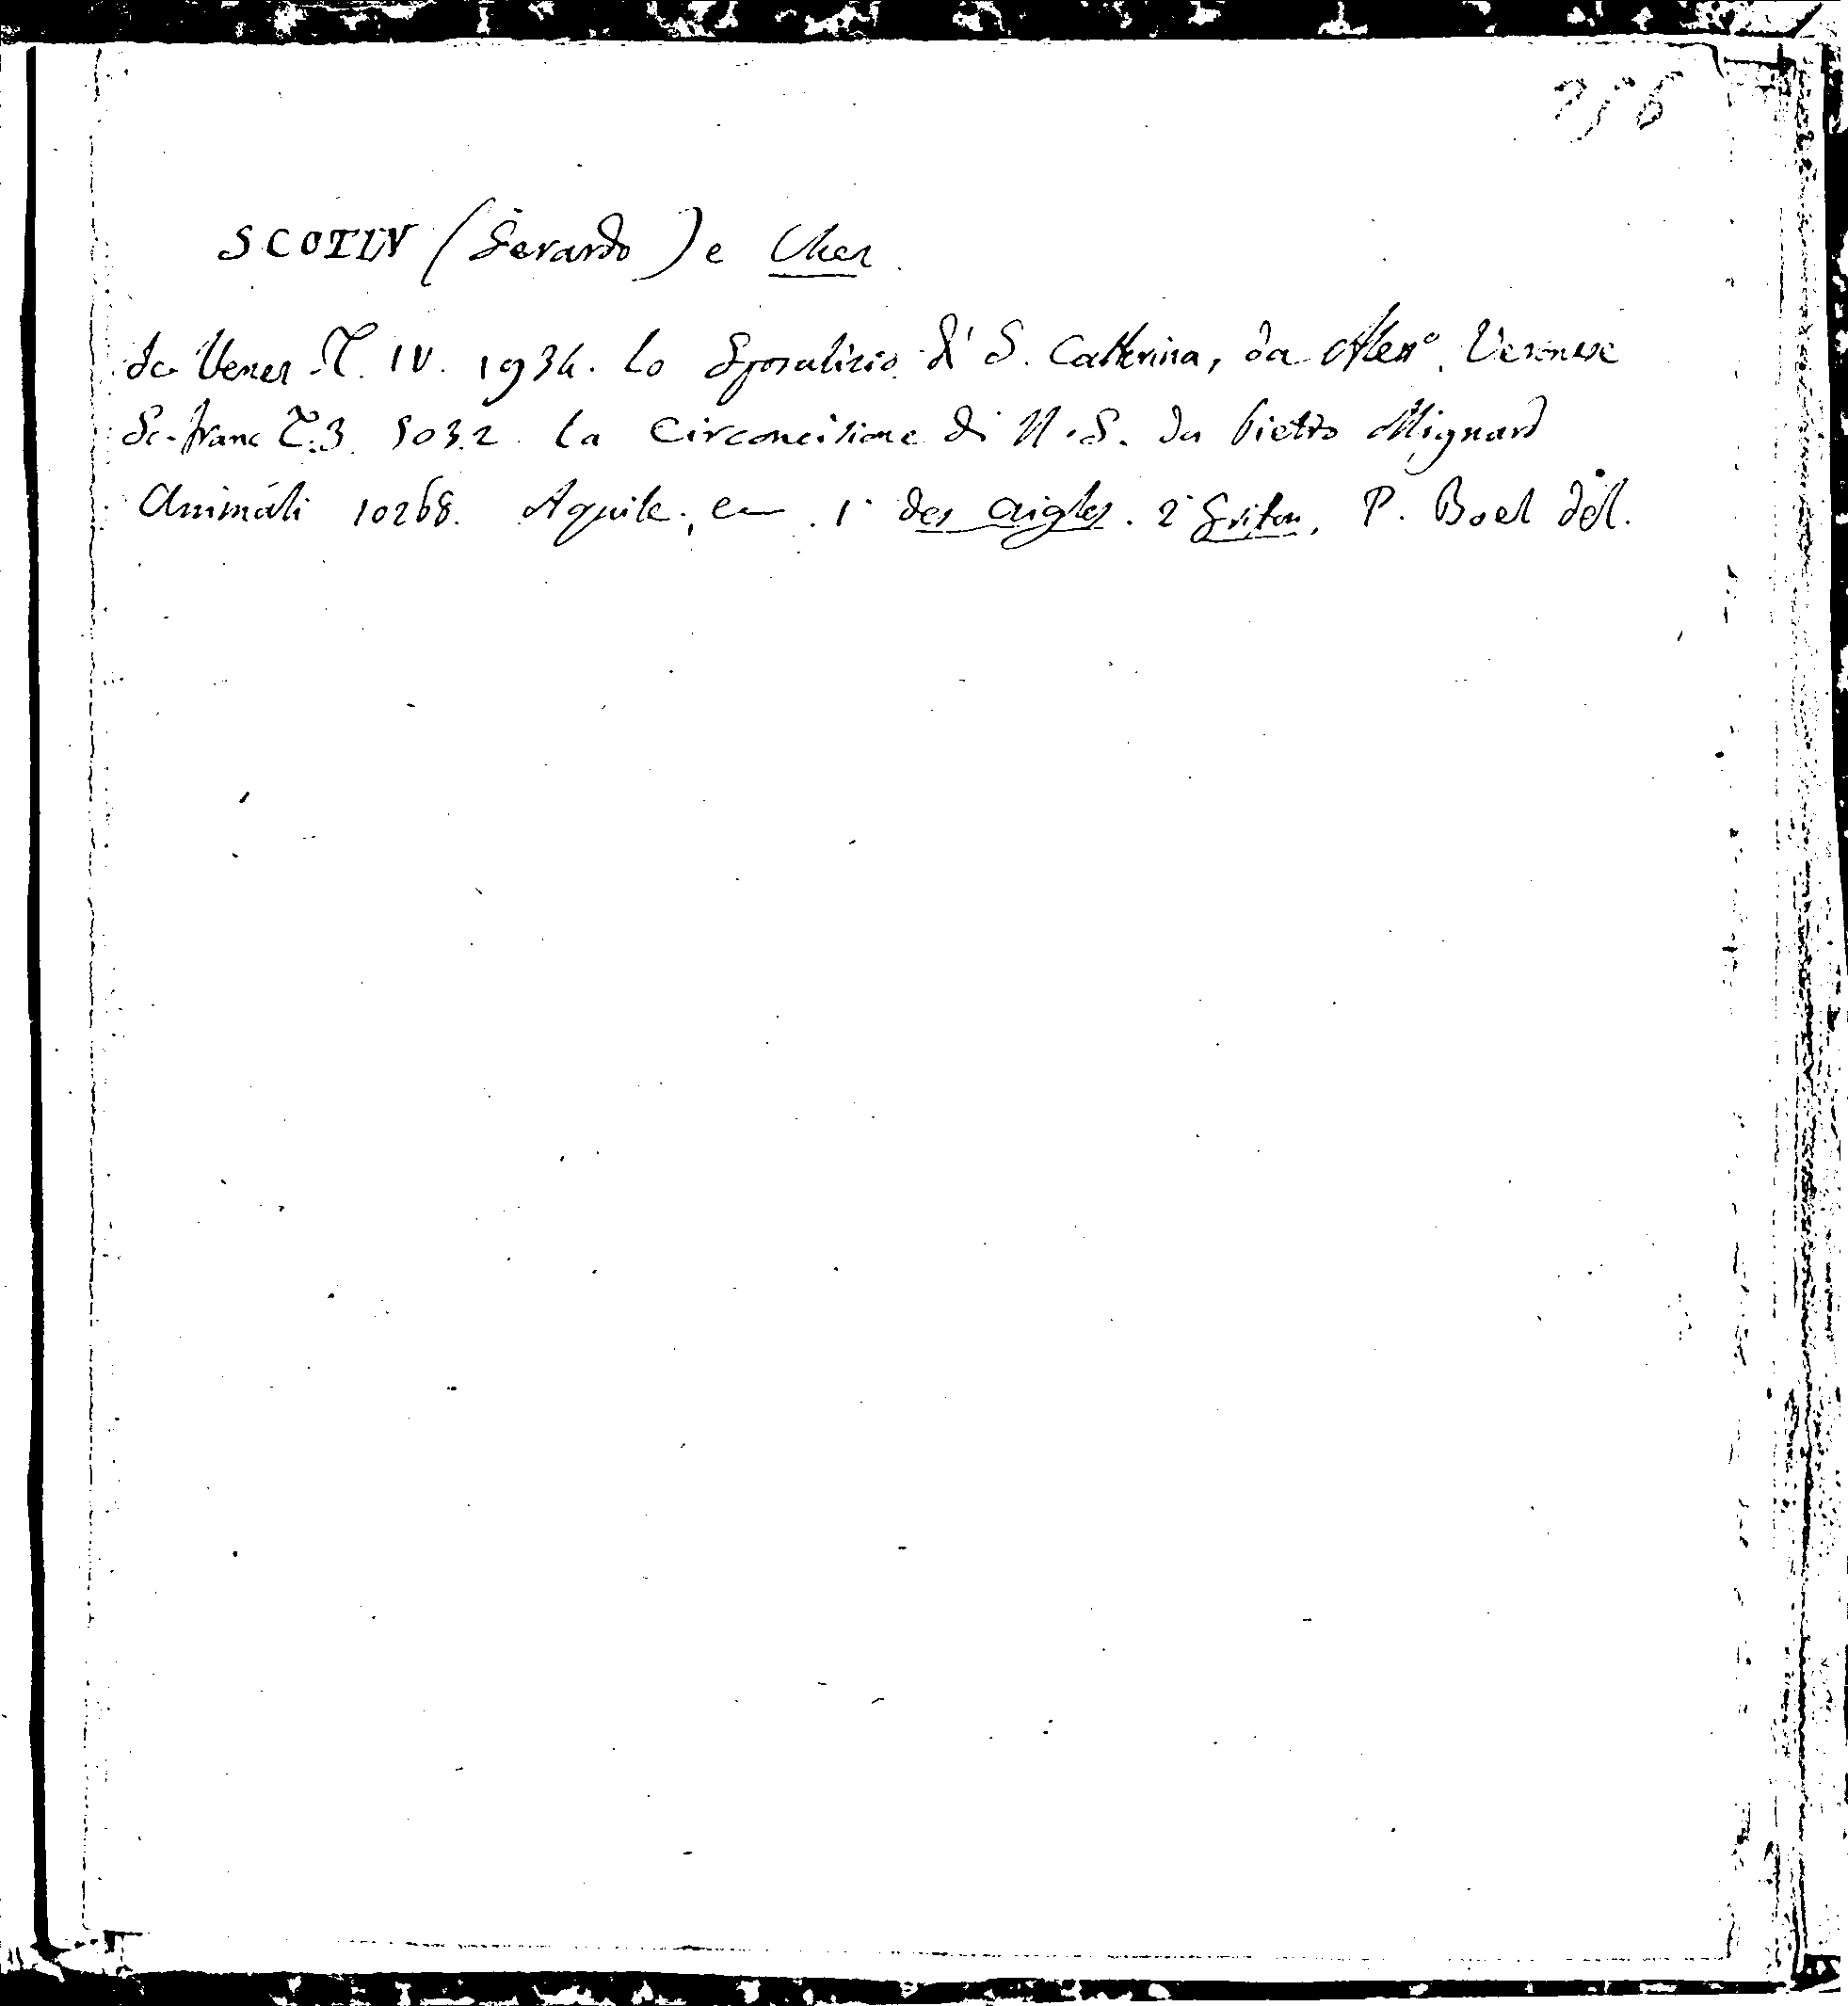 256
SCOTIN (Gerardo) e Uker
Sc. Venez. T. IV. 1934. Lo Sposalizio di S. Catterina, da Aless.º Veronese
Sc. franc T.3. 5032. La Circoncisione di N.S. da Pietro Mignard
Animali 10268. Aquile, 1º des aigles. 2º Grifon, P. Boel del.